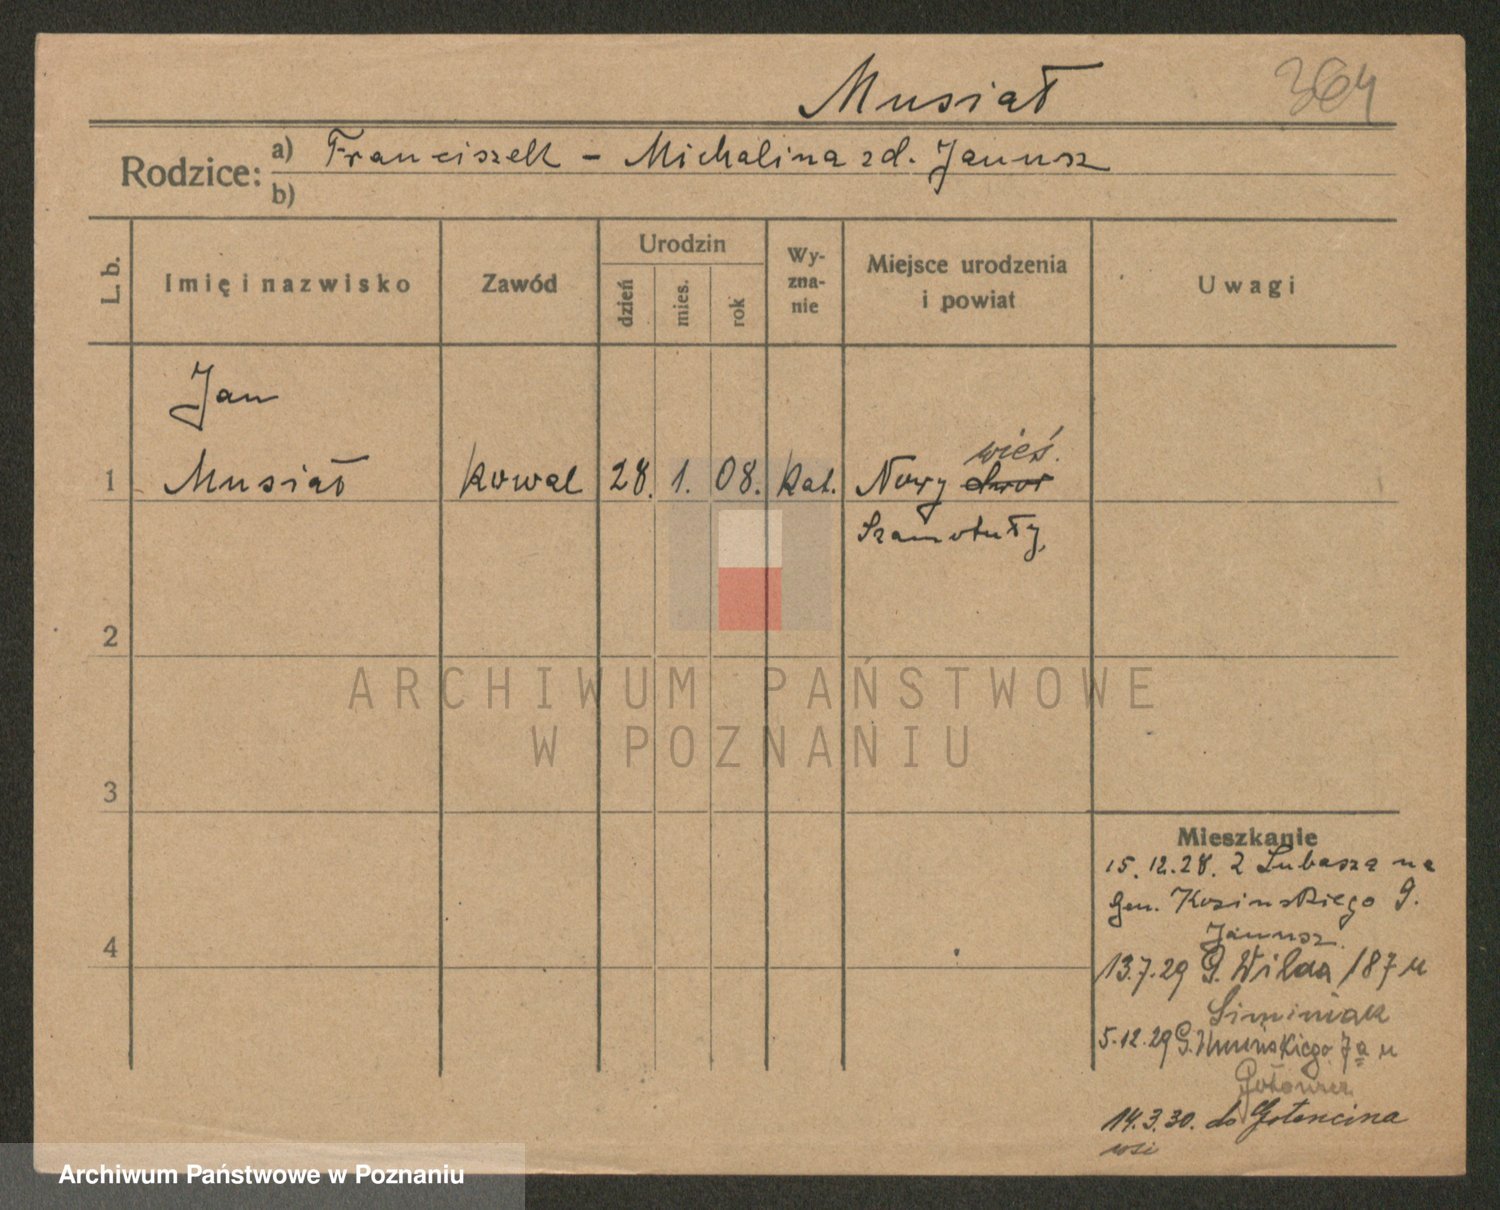 Musiał
364
Rodzice: a) Franciszek – Michalina zd. Janusz
b)
L. b.
Imię i nazwisko
Zawód
Urodzin
dzień
mies.
rok
Wy-
zna-
nie
Miejsce urodzenia
i powiat
Uwagi
Jan
wieś.
1 Musiał kowal 28. 1. 08. kat. Nowy dwór
Szamotuły,
2
ARCHIWUM PAŃSTWOWE
W POZNANIU
3
Mieszkanie
15.12.28. z Lubasza na
Gen. Kosinskiego 9.
Janusz.
4
13.7.29 G. Wilda 187 u
Siminiak
5.12.29 G. Umińskiego 7a u
14.3.30. do
wsi
Archiwum Państwowe w Poznaniu